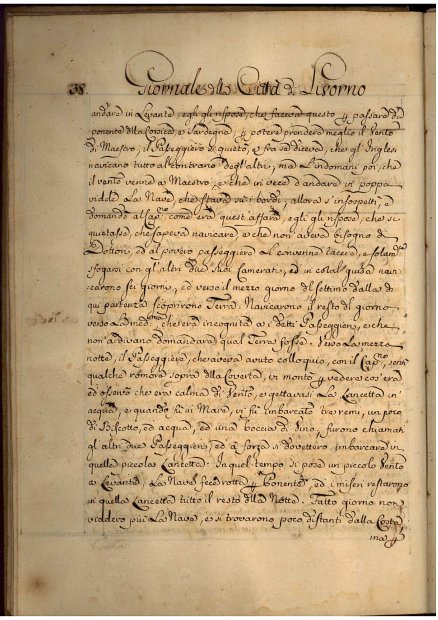 38. Giornale della Città di Livorno
andare in Levante, egli gli rispose, che faceva questo p passare di
ponente della Corsica, e Sardegna, p potere prendere meglio il Vento
di Maestro, il Passeggiero si quietò, e fra se diceva, che gl'Inglesi
navicano tutto al contrario degl'altri, ma l'indomani poi, che
il vento venne a Maestro, e che in vece d'andare in poppa
vidde La Nave, che stava su i bordi, allora s'insospettì, e
domandò al Cap.no come era quest'affare, egli gli rispose, che si
quietasse, che sapeva navicare, e che non aveva bisogno di
Dottori, ed al povero passeggiero li convenne tacere, e solam.te
sfogarsi con gl'altri due suoi Camerati, ed in cotal guisa navi-
carono sei giorni, ed verso il mezzo giorno del settimo dalla di
qui partenza scoprirono Terra. Navicarono il resto del giorno
verso La med.ma che era incognita a i detti Passeggieri, e che
non ardivano domandare qual Terra fosse. Verso La mezza
notte, il Passeggiero, che aveva avuto colloquio, con il Cap.no sentì
qualche romore sopra della Coverta, vi montò p vedere cos'era
ed osservò che era calma di Vento, e gettavasi La Lancetta in
acqua, e quando fù in Mare, in fù imbarcato tre remi, un poco
di Biscotto, ed acqua, ed una boccia di Vino, furono chiamati
gl'altri due Passeggieri, ed a forza si dovettero imbarcare in
quella piccola Lancetta. In quel tempo si pose un piccolo Vento
a Levante, La Nave fece rotta p Ponente, ed i miseri restarono
in quella Lancetta tutto il resto della Notte. Fatto giorno non
viddero più La Nave, e si trovarono poco distanti dalla Costa
ma p